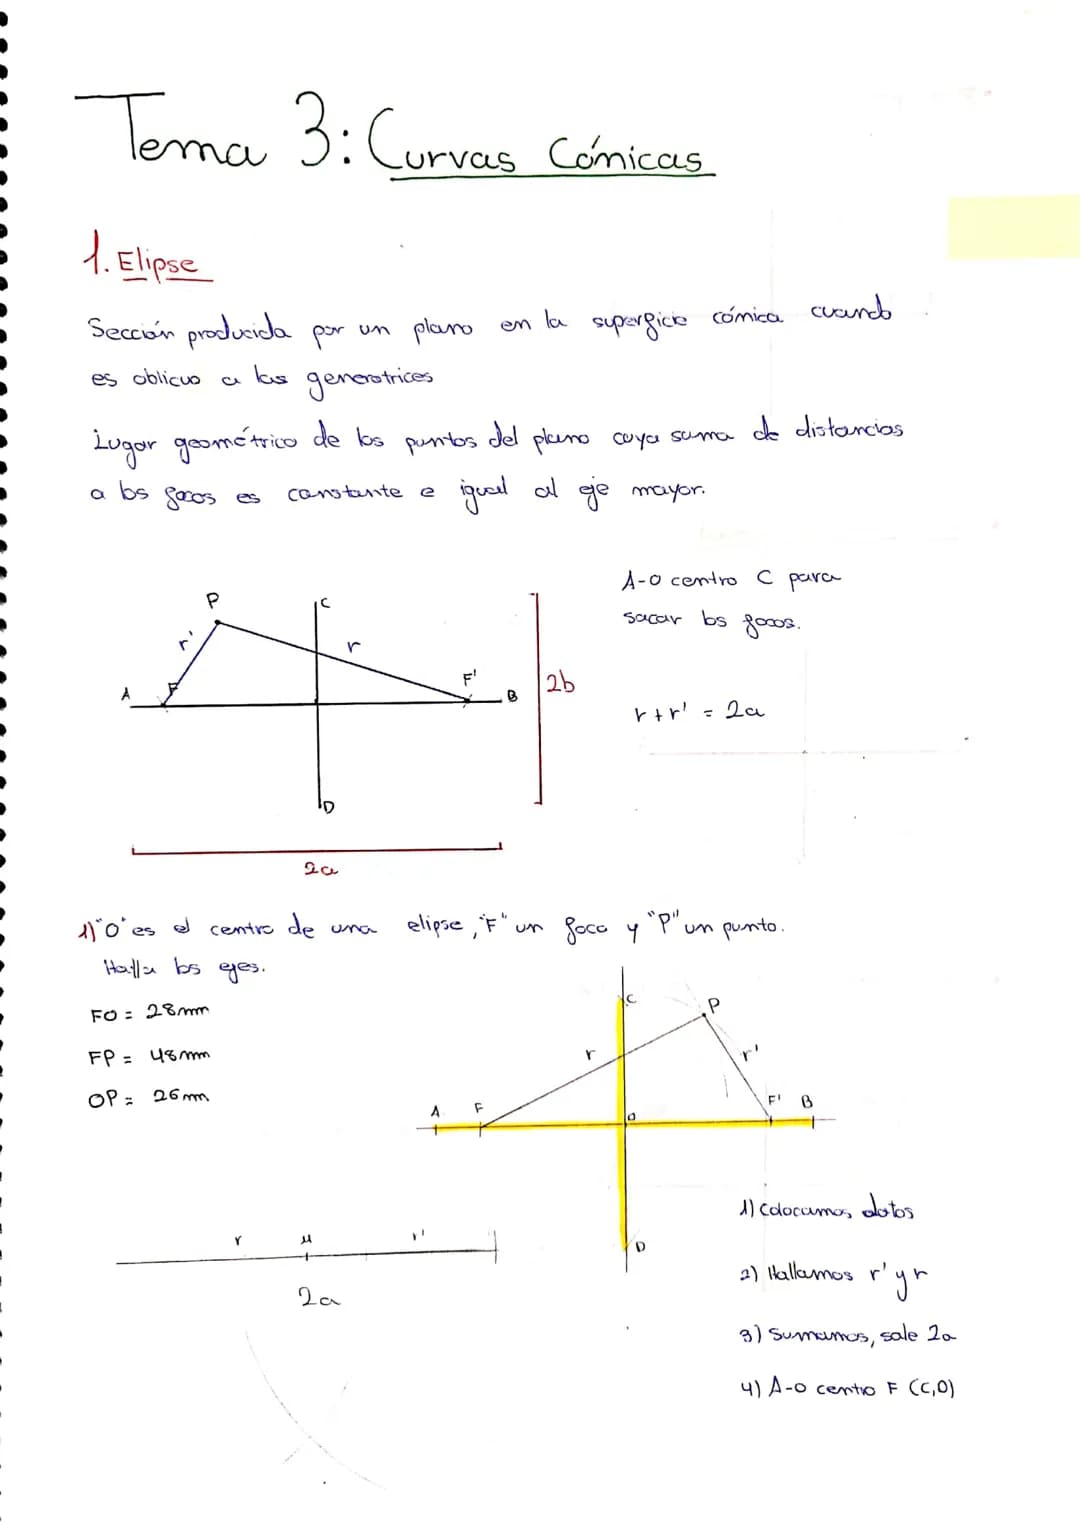 Tema 3: Curvas Cónicas
1. Elipse
Sección producida por un plano en la superficie cónica cuando
es oblicuo a las generatrices
Lugar geométrico de los puntos del plano cuya suma de distancias
a los focos es constante e igual al eje mayor.
A-O centro C para
sacar los focos.
P
C
r'
r
A
F
F'
B
2b
r+r' = 2a
D
2a
1) "O" es el centro de una elipse, "F" un foco y "P" un punto.
Halla los ejes.
FO = 28mm
FP = 48mm
OP = 26mm
C
P
r
r'
A
F
O
F'
B
D
r
M
r'
2a
1) Colocamos datos
2) Hallamos r' y r
3) Sumamos, sale 2a
4) A-O centro F (C,D)